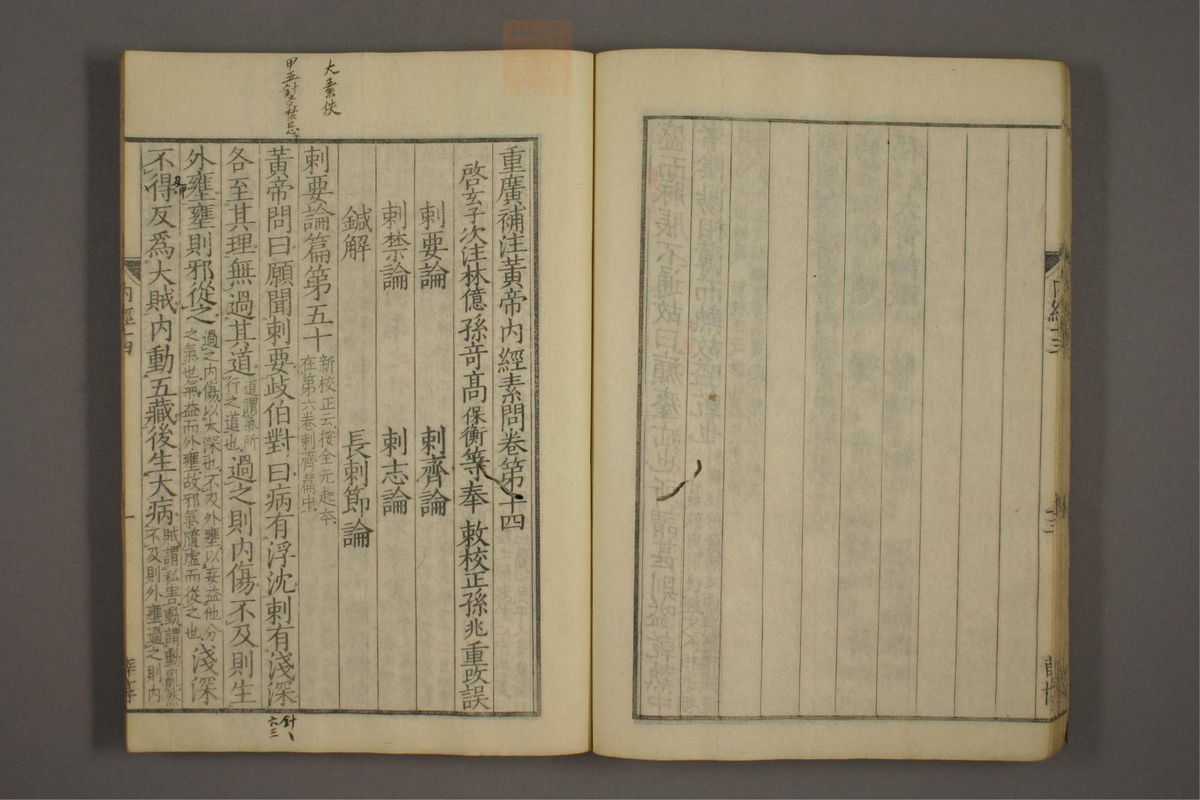 重廣補注黃帝內經素問卷第十四
啓玄子次注林億孫奇高保衡等奉敕校正孫兆重改誤
刺要論 刺齊論
刺禁論 刺志論
鍼解 長刺節論
刺要論篇第五十 新校正云按全元起本在第六卷刺齊篇中
黃帝問曰願聞刺要歧伯對曰病有浮沈刺有淺深
各至其理無過其道 道謂氣所行之道也 過之則內傷不及則生
外壅壅則邪從之 過之內傷以太深也不及外壅以妄益他分之氣也氣益而外壅故邪氣隨虛而從之也 淺深
不得反爲大賊內動五藏後生大病 賊謂私害動謂動亂然不及則外壅過之則內
內經十四
一
大素佚
甲五針灸禁忌下
六三
內經十三
十三